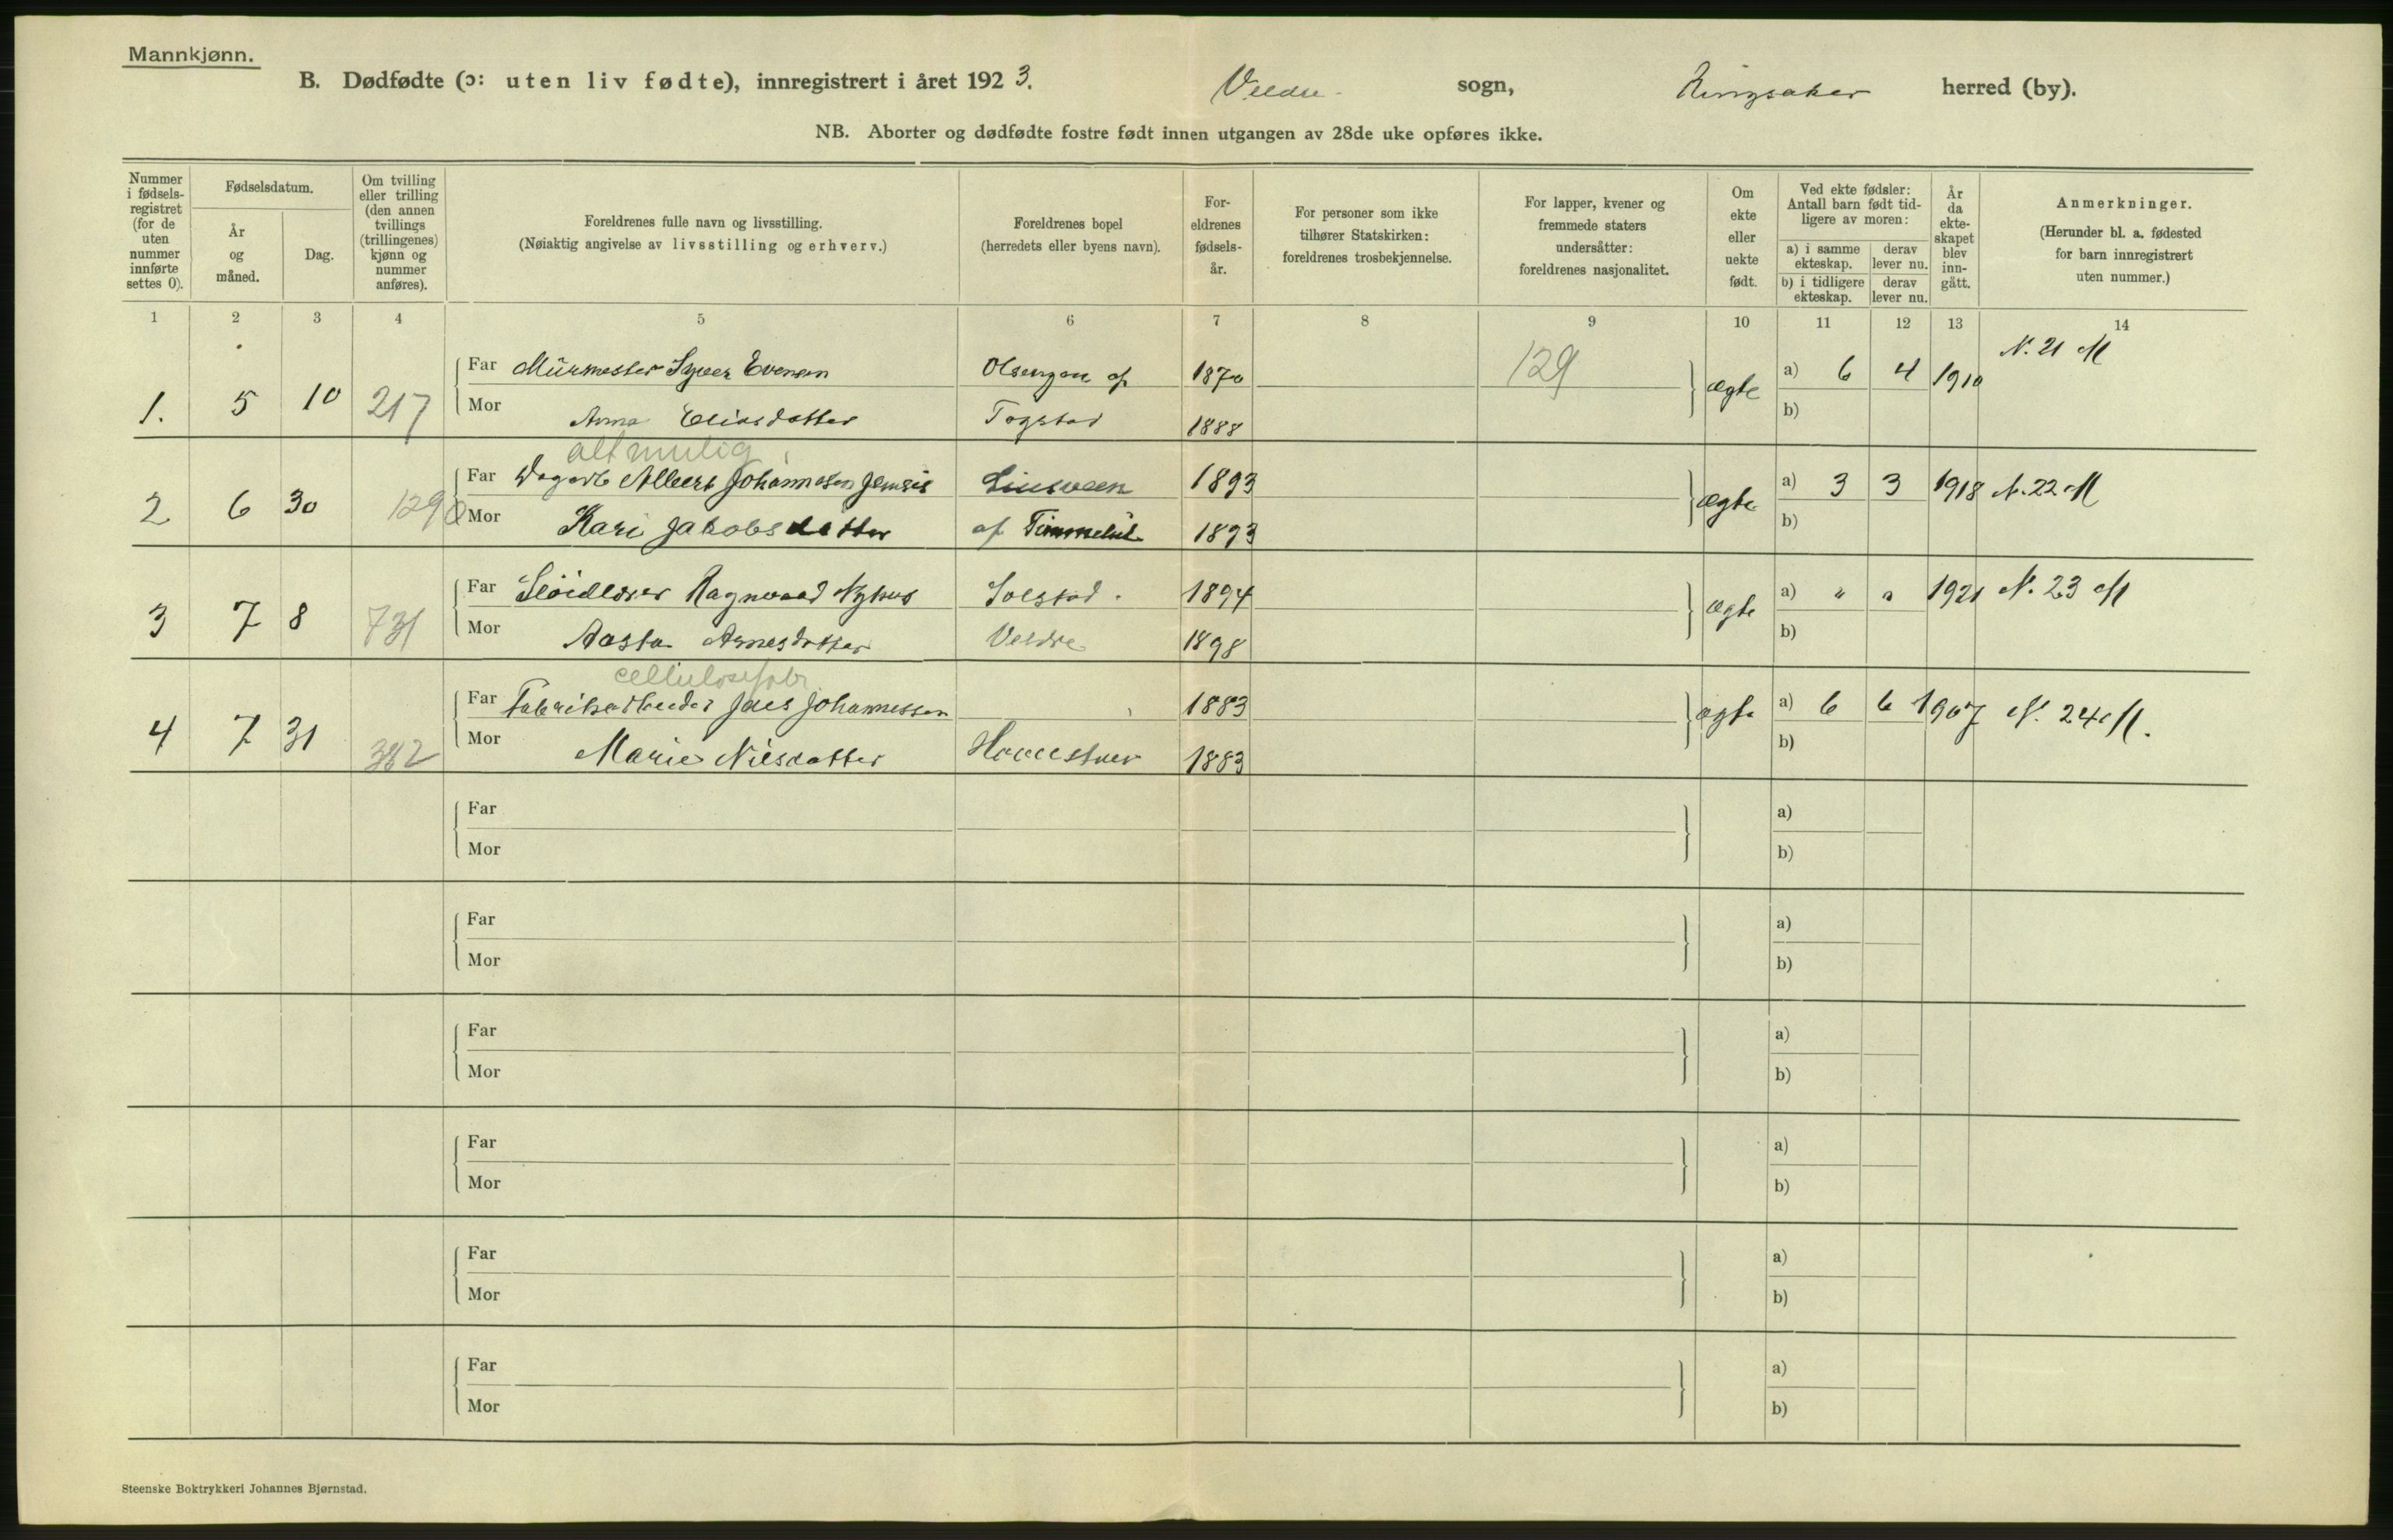 Mannkjønn.
B. Dødfødte (ɔ: uten liv fødte), innregistrert i året 1923. Veldre sogn, Ringsaker herred (by).
NB. Aborter og dødfødte fostre født innen utgangen av 28de uke opføres ikke.
Nummer i fødsels-registret (for de uten nummer innførte settes 0).
Fødselsdatum.
År og måned.
Dag.
Om tvilling eller trilling (den annen tvillings (trillingenes) kjønn og nummer anføres).
Foreldrenes fulle navn og livsstilling.
(Nøiaktig angivelse av livsstilling og erhverv.)
Foreldrenes bopel
(herredets eller byens navn).
For-eldrenes fødsels-år.
For personer som ikke tilhører Statskirken: foreldrenes trosbekjennelse.
For lapper, kvener og fremmede staters undersåtter: foreldrenes nasjonalitet.
Om ekte eller uekte født.
Ved ekte fødsler: Antall barn født tid-ligere av moren:
a) i samme ekteskap.
derav lever nu.
b) i tidligere ekteskap.
derav lever nu.
År da ekte-skapet blev inn-gått.
Anmerkninger.
(Herunder bl. a. fødested for barn innregistrert uten nummer.)
1 2 3 4 5 6 7 8 9 10 11 12 13 14
Far Mürmester Syver Evensen Olsengen af 1870 129 a) 6 4 1910 N. 21 M
1. 5 10 217 Mor Anna Eliasdatter Togstad 1888 ægte b)
altmulig
Far Dagarb Albert Johannesen 1893 a) 3 3 1918 N. 22 M
2 6 30 129 Mor Kari Jakobsdatter af 1893 ægte b)
Far Sløidlærer Ragnvald Nyhus Solstad. 1894 a) " " 1921 N. 23 M
3 7 8 731 Mor Aasta Arnesdatter Veldre 1898 ægte b)
cellulosefabr
Far Fabrikarbeider Johannessen 1883 a) 6 6 1907 N. 24 M.
4 7 31 382 Mor Marie Nilsdatter 1883 ægte b)
Far a)
Mor b)
Far a)
Mor b)
Far a)
Mor b)
Far a)
Mor b)
Far a)
Mor b)
Far a)
Mor b)
Steenske Boktrykkeri Johannes Bjørnstad.